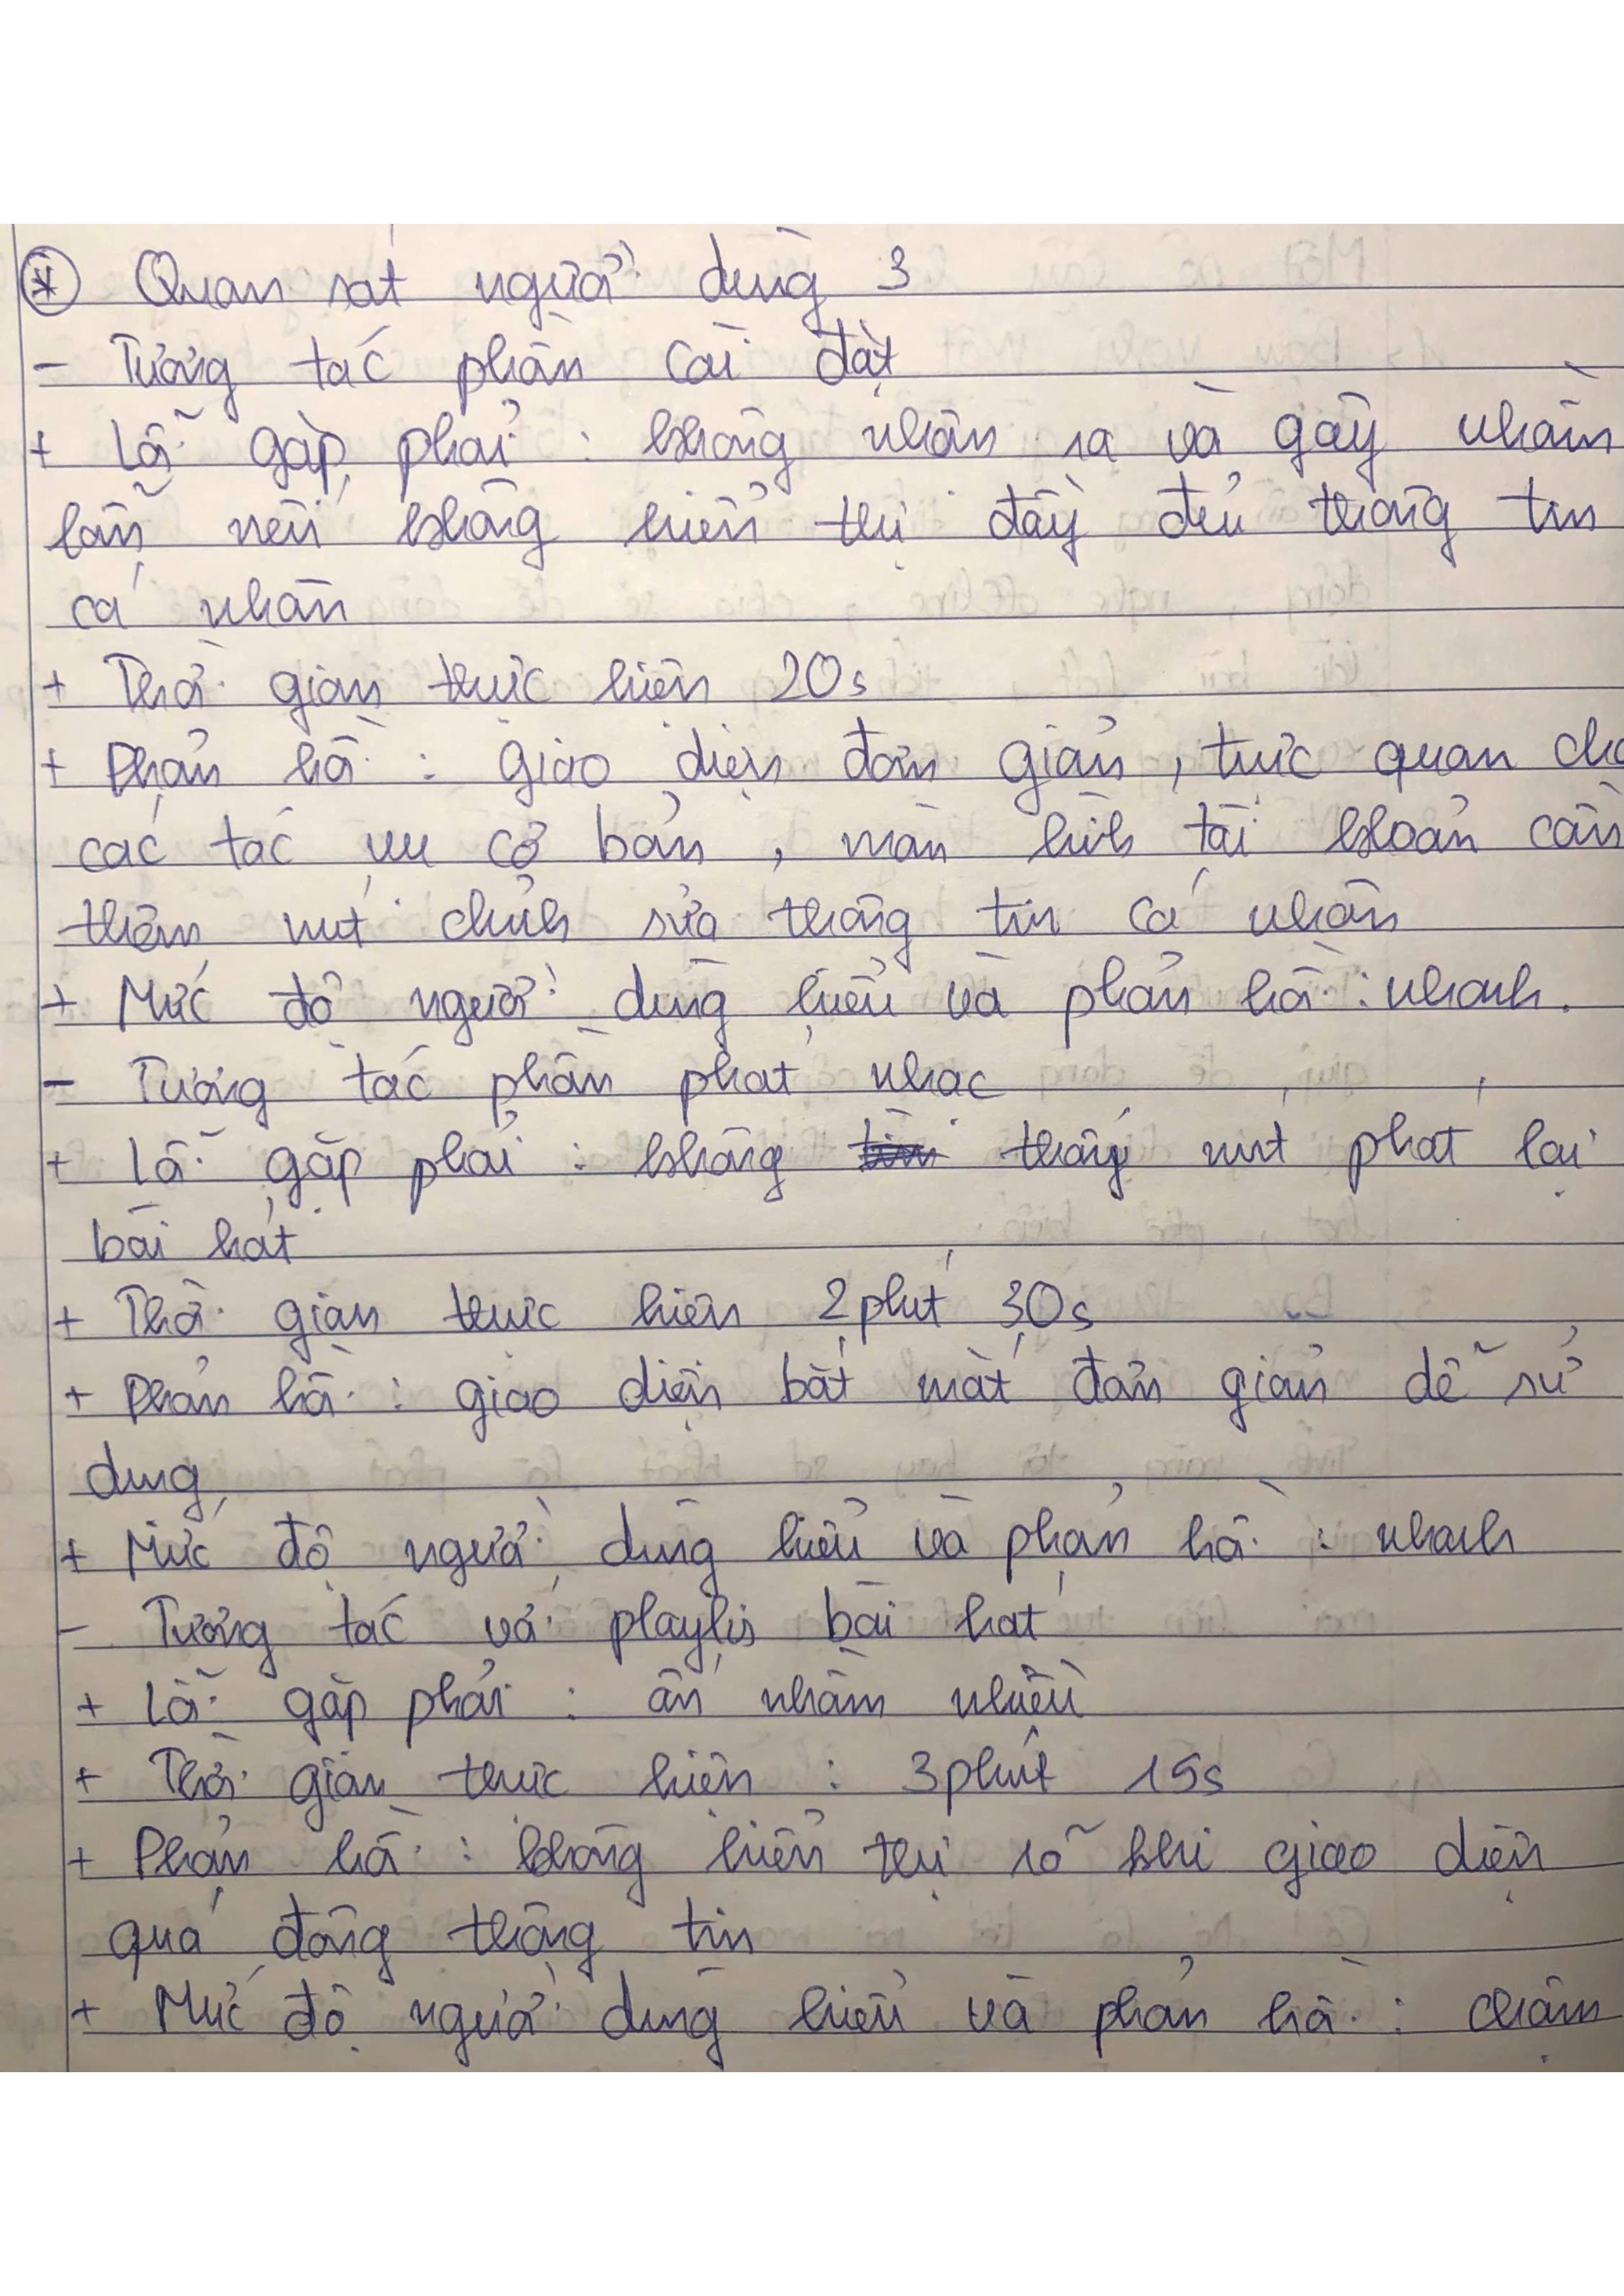 * Quan sát người dùng 3
- Tương tác phần cài đặt
+ Lỗi gặp phải : không nhận ra và gây nhầm
lẫn nếu không hiển thị đầy đủ thông tin
cá nhân
+ Thời gian thực hiện 20s
+ Phản hồi : giao diện đơn giản , trực quan cho
các tác vụ cơ bản , màn hình tài khoản cần
thêm nút chỉnh sửa thông tin cá nhân
+ Mức độ người dùng hiểu và phản hồi : nhanh.
- Tương tác phần phát nhạc
+ Lỗi gặp phải : không thấy nút phát lại
bài hát
+ Thời gian thực hiện 2 phút 30s
+ Phản hồi : giao diện bắt mắt đơn giản dễ sử
dụng
+ Mức độ người dùng hiểu và phản hồi : nhanh
- Tương tác với playlis bài hát
+ Lỗi gặp phải : ấn nhầm nhiều
+ Thời gian thực hiện : 3 phút 15s
+ Phản hồi : không hiển thị rõ khi giao diện
quá đông thông tin
+ Mức độ người dùng hiểu và phản hồi : chậm